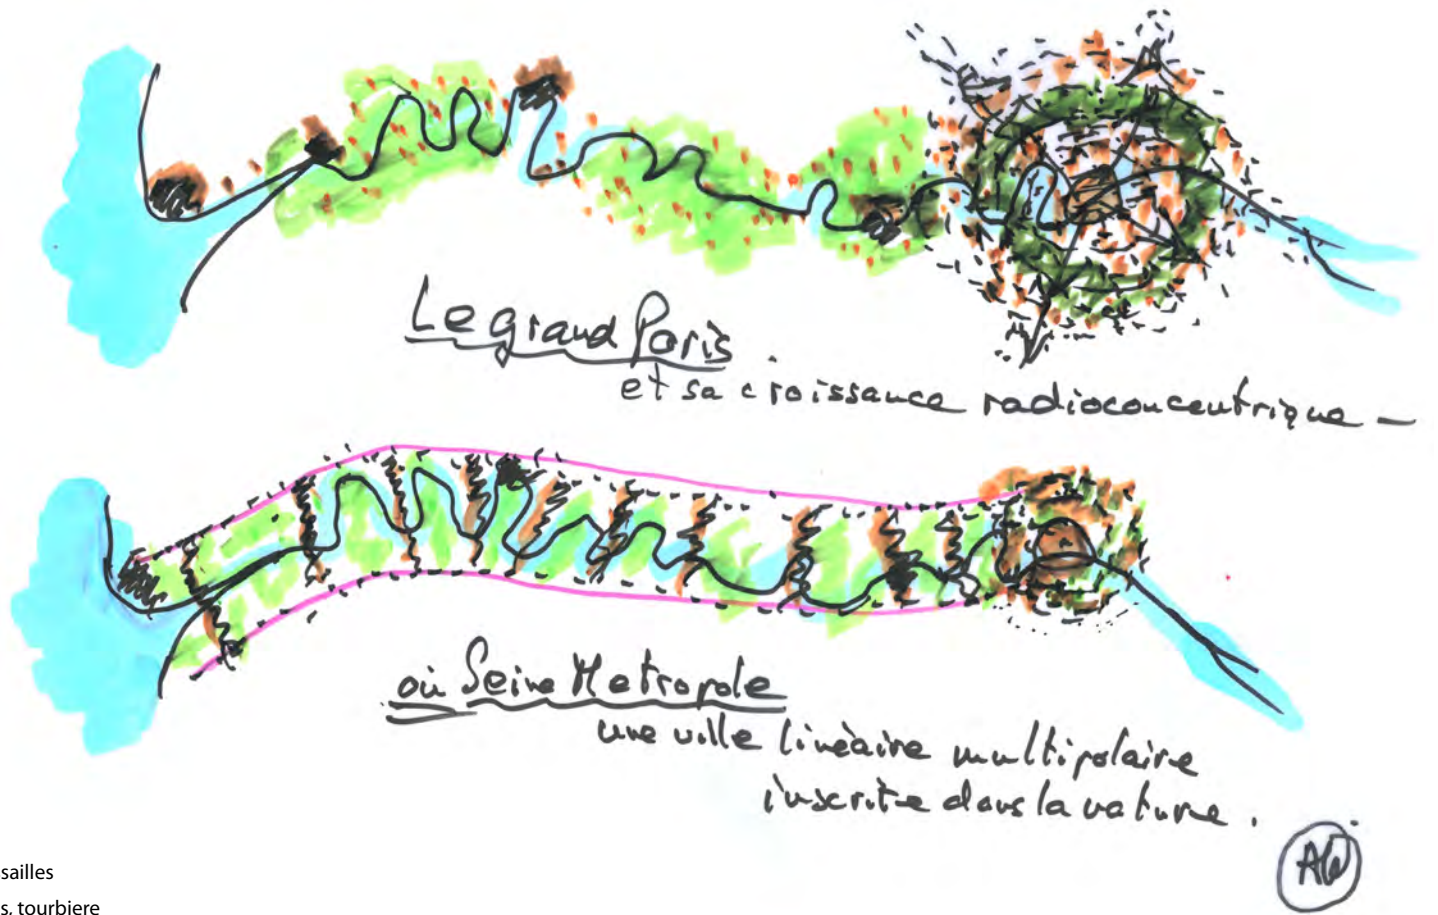 Le grand Paris
et sa croissance radioconcentrique –
où Seine Metropole
une ville linéaire multipolaire
inscrite dans la nature.
sailles
s, tourbiere